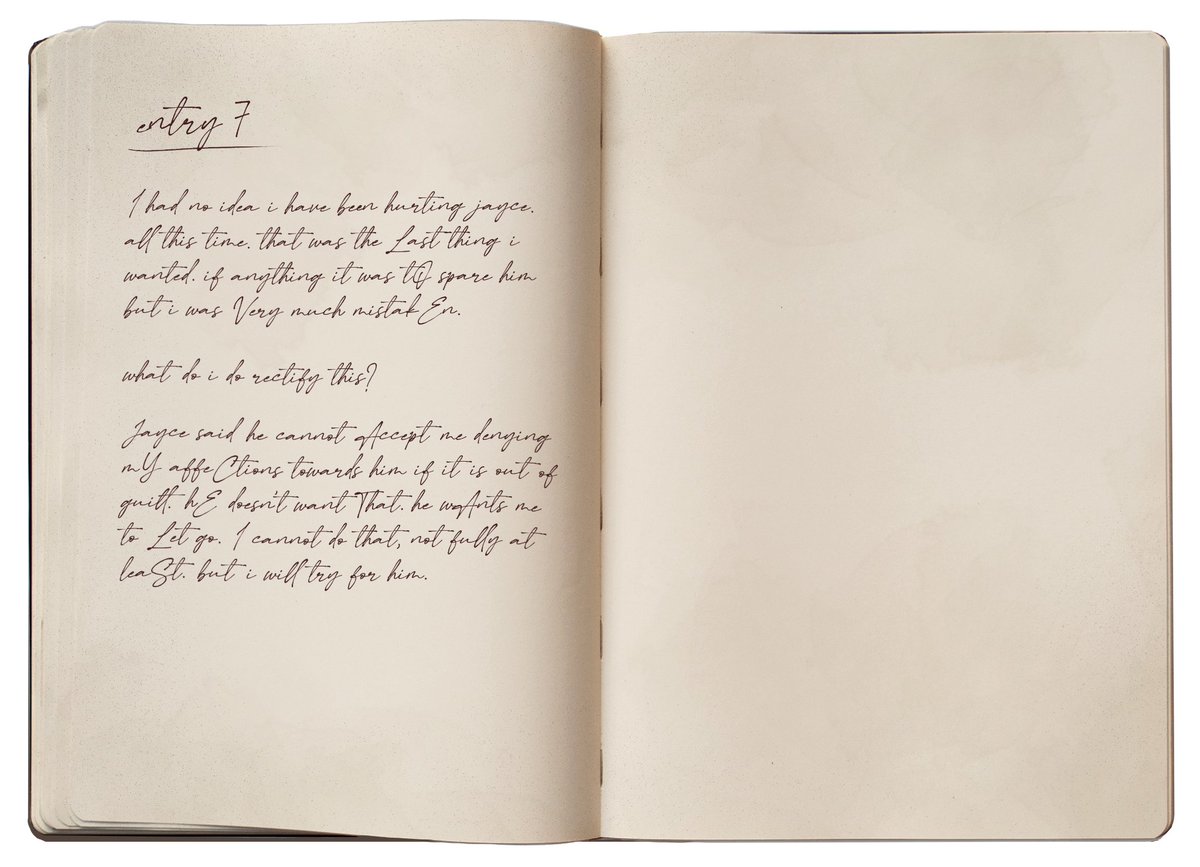 entry 7
I had no idea i have been hurting jayce.
all this time. that was the Last thing i
wanted. if anything it was tO spare him
but i was Very much mistakEn.
what do i do rectify this?
Jayce said he cannot Accept me denying
mY affeCtions towards him if it is out of
guilt. hE doesn't want That. he wAnts me
to Let go. I cannot do that, not fully at
leaSt. but i will try for him.